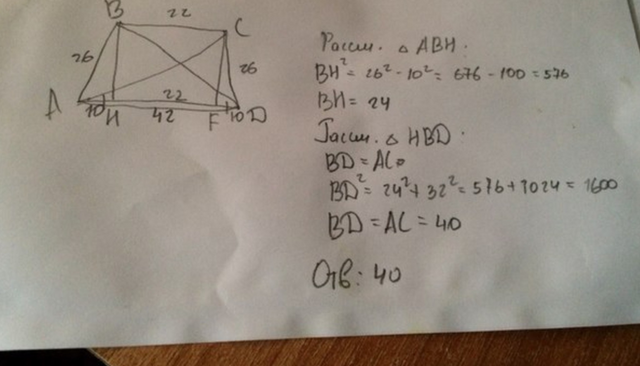 B 22 C
26 26
A 10 H 22 42 F 10 D
Рассм. △ ABH.
BH² = 26² - 10² = 676 - 100 = 576
BH = 24
Рассм. △ HBD.
BD = AC
BD² = 24² + 32² = 576 + 1024 = 1600
BD = AC = 40
Отв: 40